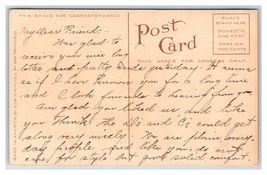 THIS SPACE FOR CORRESPONDENCE
Post Card
THIS SPACE FOR ADDRESS ONLY
PLACE
STAMP HERE
DOMESTIC
ONE CENT
FOREIGN
TWO CENTS
My Dear Friend:-
Was glad to
receive your nice long
letter and pretty cards yesterday. It seems
as if I had known you for a long time
and I look forward to hearing from you.
Am glad you liked us and like
you I think the D's and C's could get
along very nicely. We are plain every
day people, and like you, do not
care for style but good solid comfort.